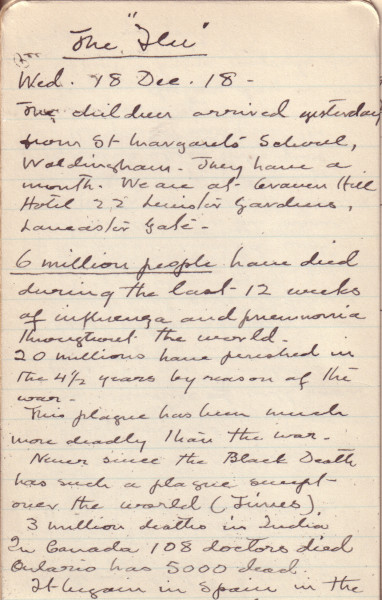 The "Flu"
Wed. 18 Dec. 18 -
The children arrived yesterday
from St Margaret's School,
Waldingham. They have a
month. We are at Craven Hill
Hotel 22 Leinster Gardens,
Lancaster Gate -
6 million people have died
during the last 12 weeks
of influenza and pneumonia
throughout the world.
20 millions have perished in
the 4½ years by reason of the
war.
This plague has been much
more deadly than the war.
Never since the Black Death
has such a plague swept
over the world (Times).
3 million deaths in India
In Canada 108 doctors died
Ontario has 5000 dead.
It began in Spain in the